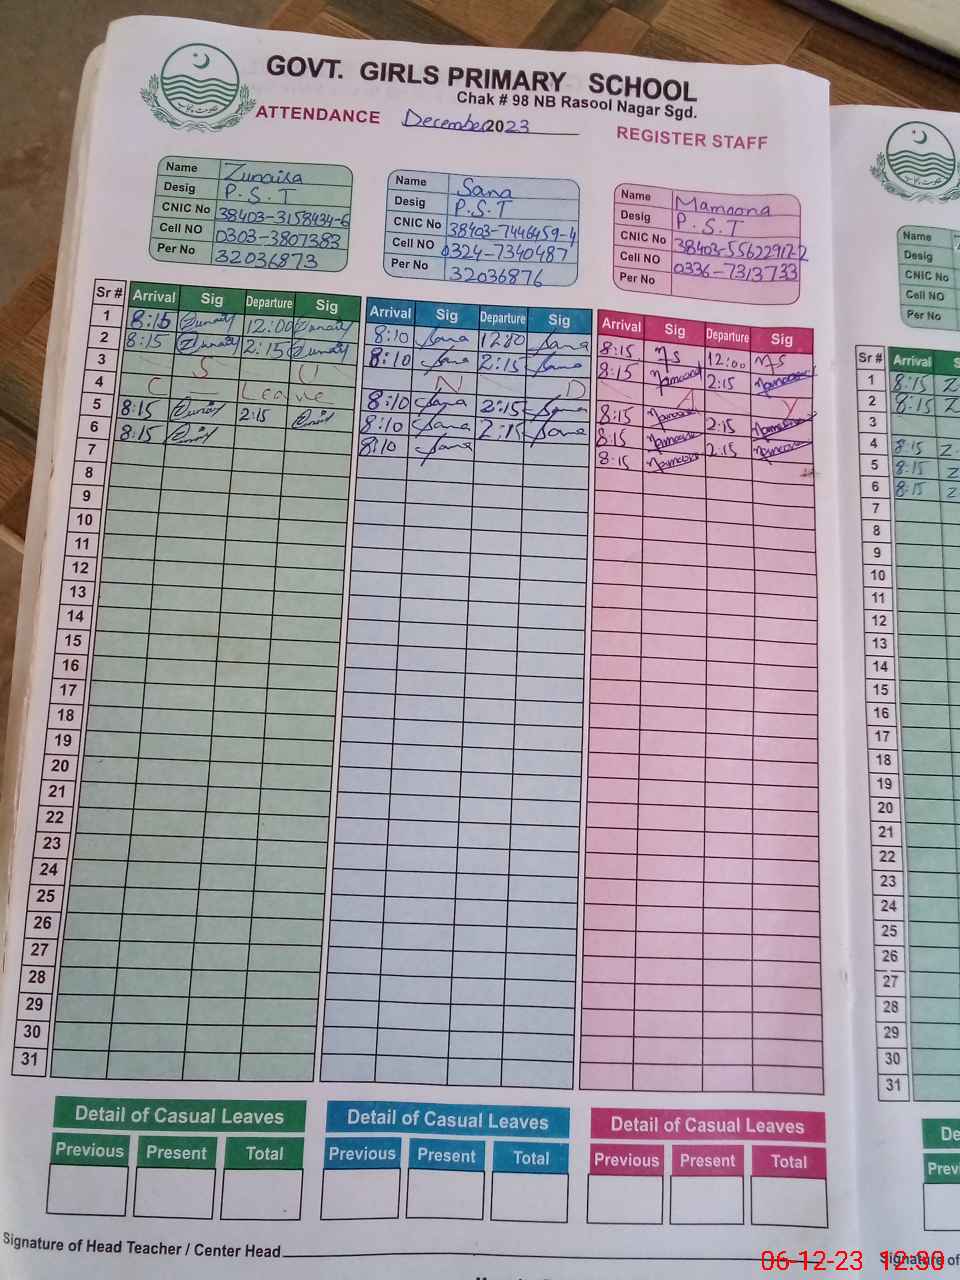 GOVT. GIRLS PRIMARY SCHOOL
Chak # 98 NB Rasool Nagar Sgd.
ATTENDANCE December 2023 REGISTER STAFF
Name Zunaira
Desig P.S.T
CNIC No 38403-3158434-6
Cell NO 0303-3807383
Per No 32036873
Name Sana
Desig P.S.T
CNIC No 38403-7446459-4
Cell NO 0324-7340487
Per No 32036876
Name Mamoona
Desig P.S.T
CNIC No
Cell NO 0336-7313733
Per No
Name
Desig
CNIC No
Cell NO
Per No
Sr # Arrival Sig Departure Sig Arrival Sig Departure Sig Arrival Sig Departure Sig
1 8:15 Zunaira 12:00 Zunaira 8:10 Sana 12:00 Sana 8:15 MS 12:00 MS
2 8:15 Zunaira 2:15 Zunaira 8:10 Sana 2:15 Sana 8:15 Mamoona 2:15 Mamoona
3 S U N D A Y
4 C Leave 8:10 Sana 2:15 Sana 8:15 Mamoona 2:15 Mamoona
5 8:15 Zunaira 2:15 Zunaira 8:10 Sana 2:15 Sana 8:15 Mamoona 2:15 Mamoona
6 8:15 Zunaira 8:10 Sana 8:15 Mamoona
7
8
9
10
11
12
13
14
15
16
17
18
19
20
21
22
23
24
25
26
27
28
29
30
31
Sr # Arrival S
1 8:15 Z
2 8:15 Z
3
4 8:15 Z
5 8:15 Z
6 8:15 Z
7
8
9
10
11
12
13
14
15
16
17
18
19
20
21
22
23
24
25
26
27
28
29
30
31
Detail of Casual Leaves Detail of Casual Leaves Detail of Casual Leaves De
Previous Present Total Previous Present Total Previous Present Total Previ
Signature of Head Teacher / Center Head
Signature of
06-12-23 12:30